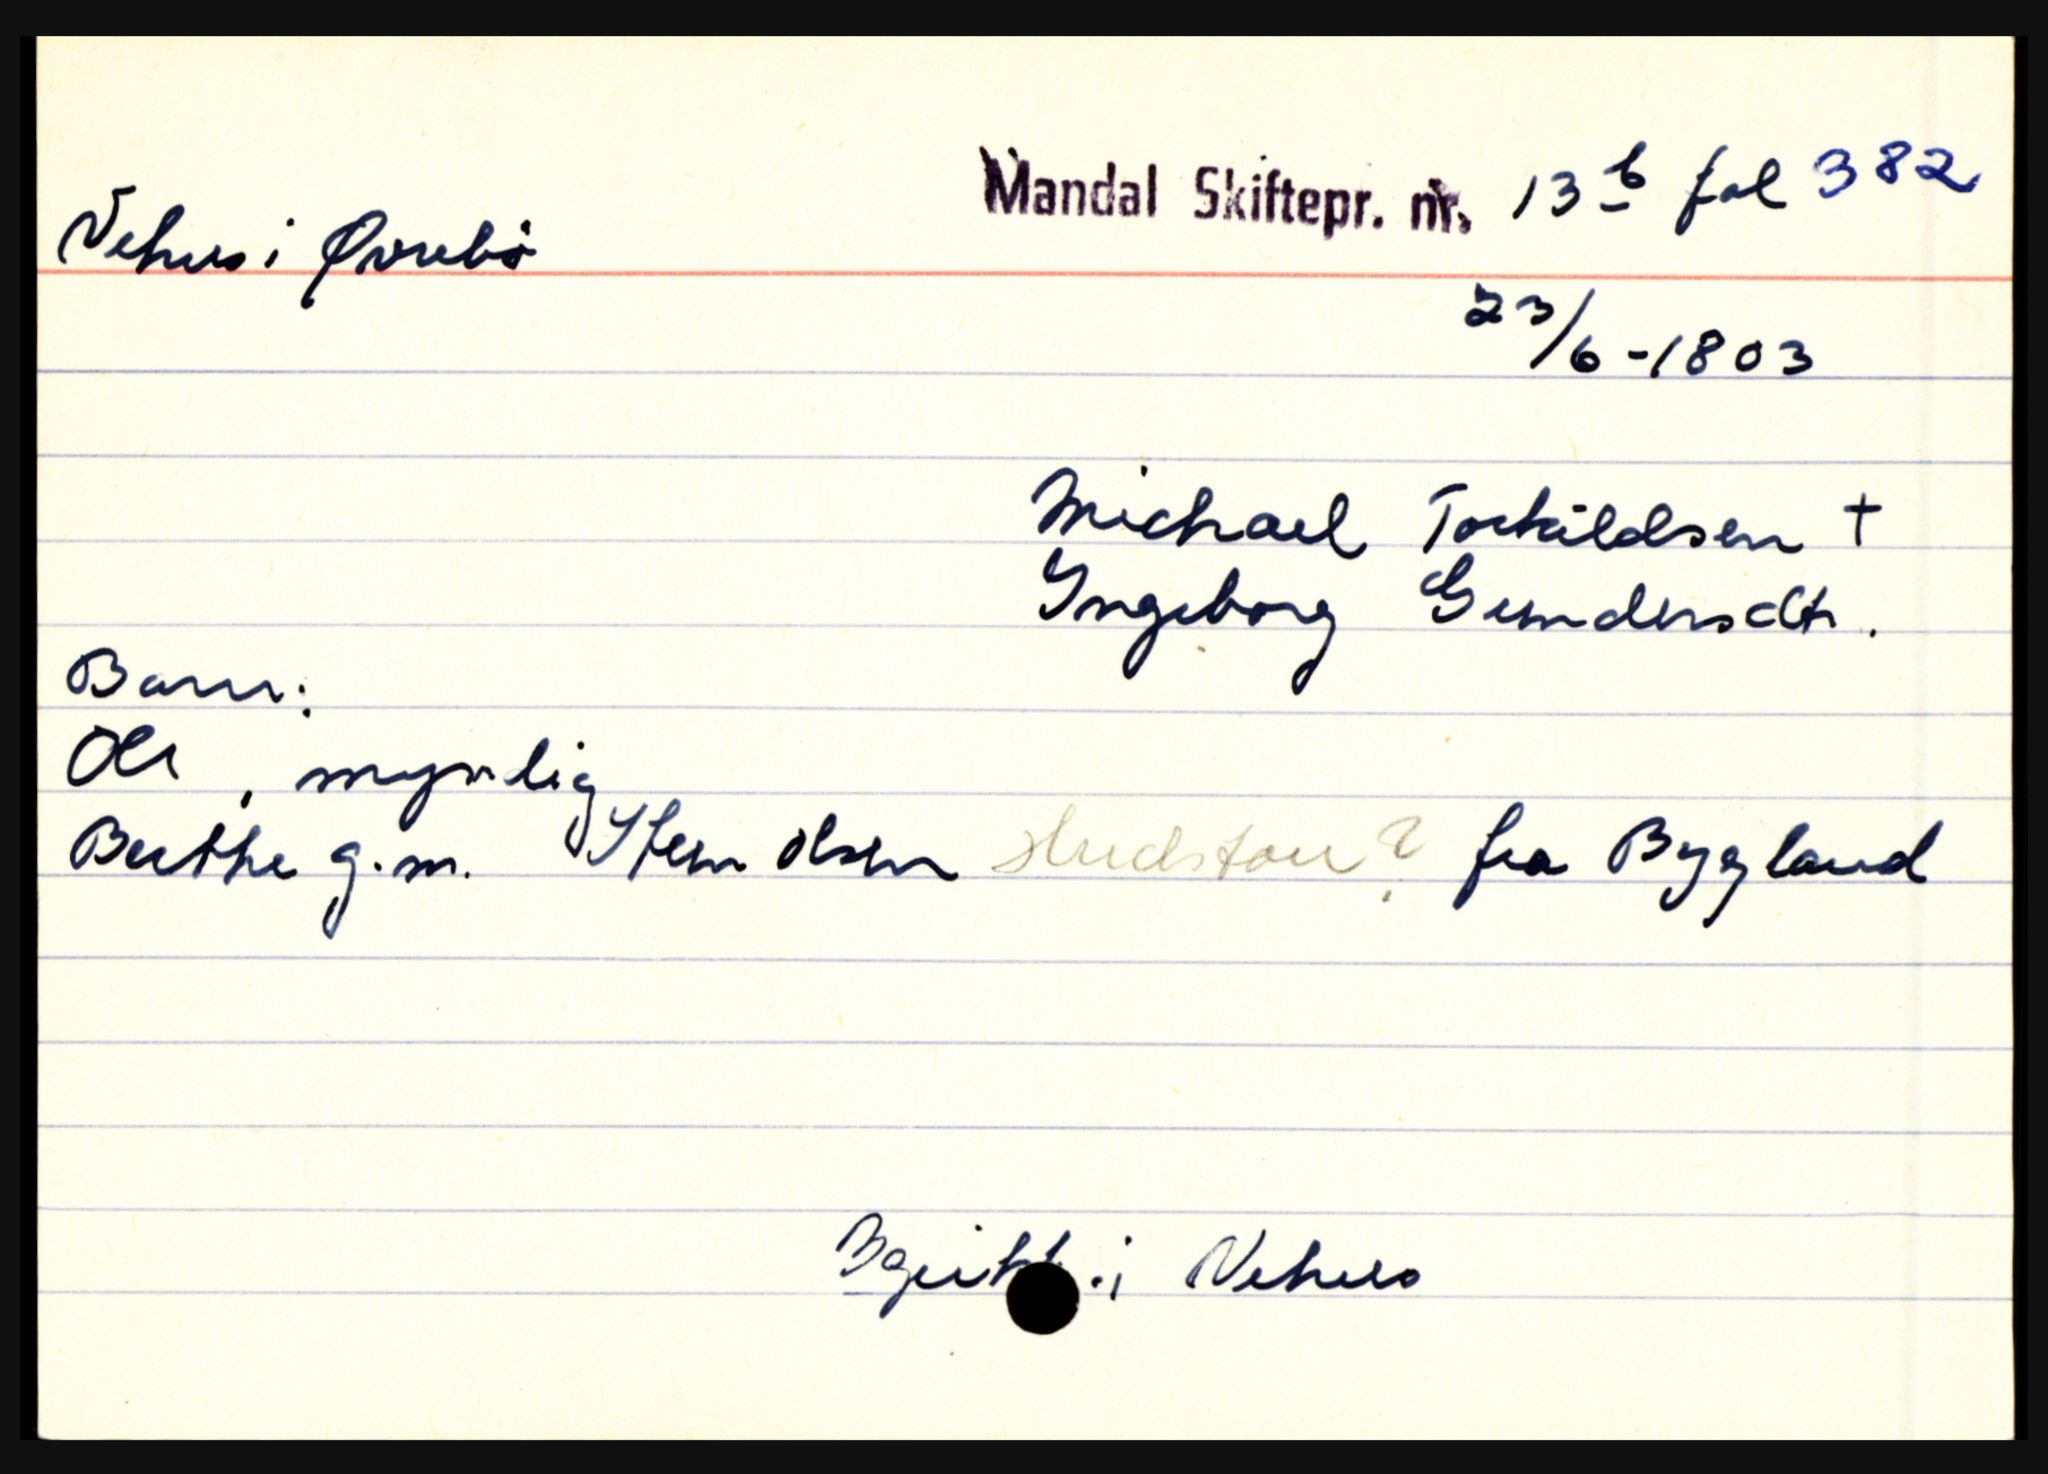 Mandal Skiftepr. nr. 13 b fol 382
Vehus i Øvrebø
23/6-1803
Michael Torkildsen †
Ingeborg Gundersdtr.
Barn:
Ole, myndig
Berthe g.m. Sten Olsen fra Bygland
i Vehus